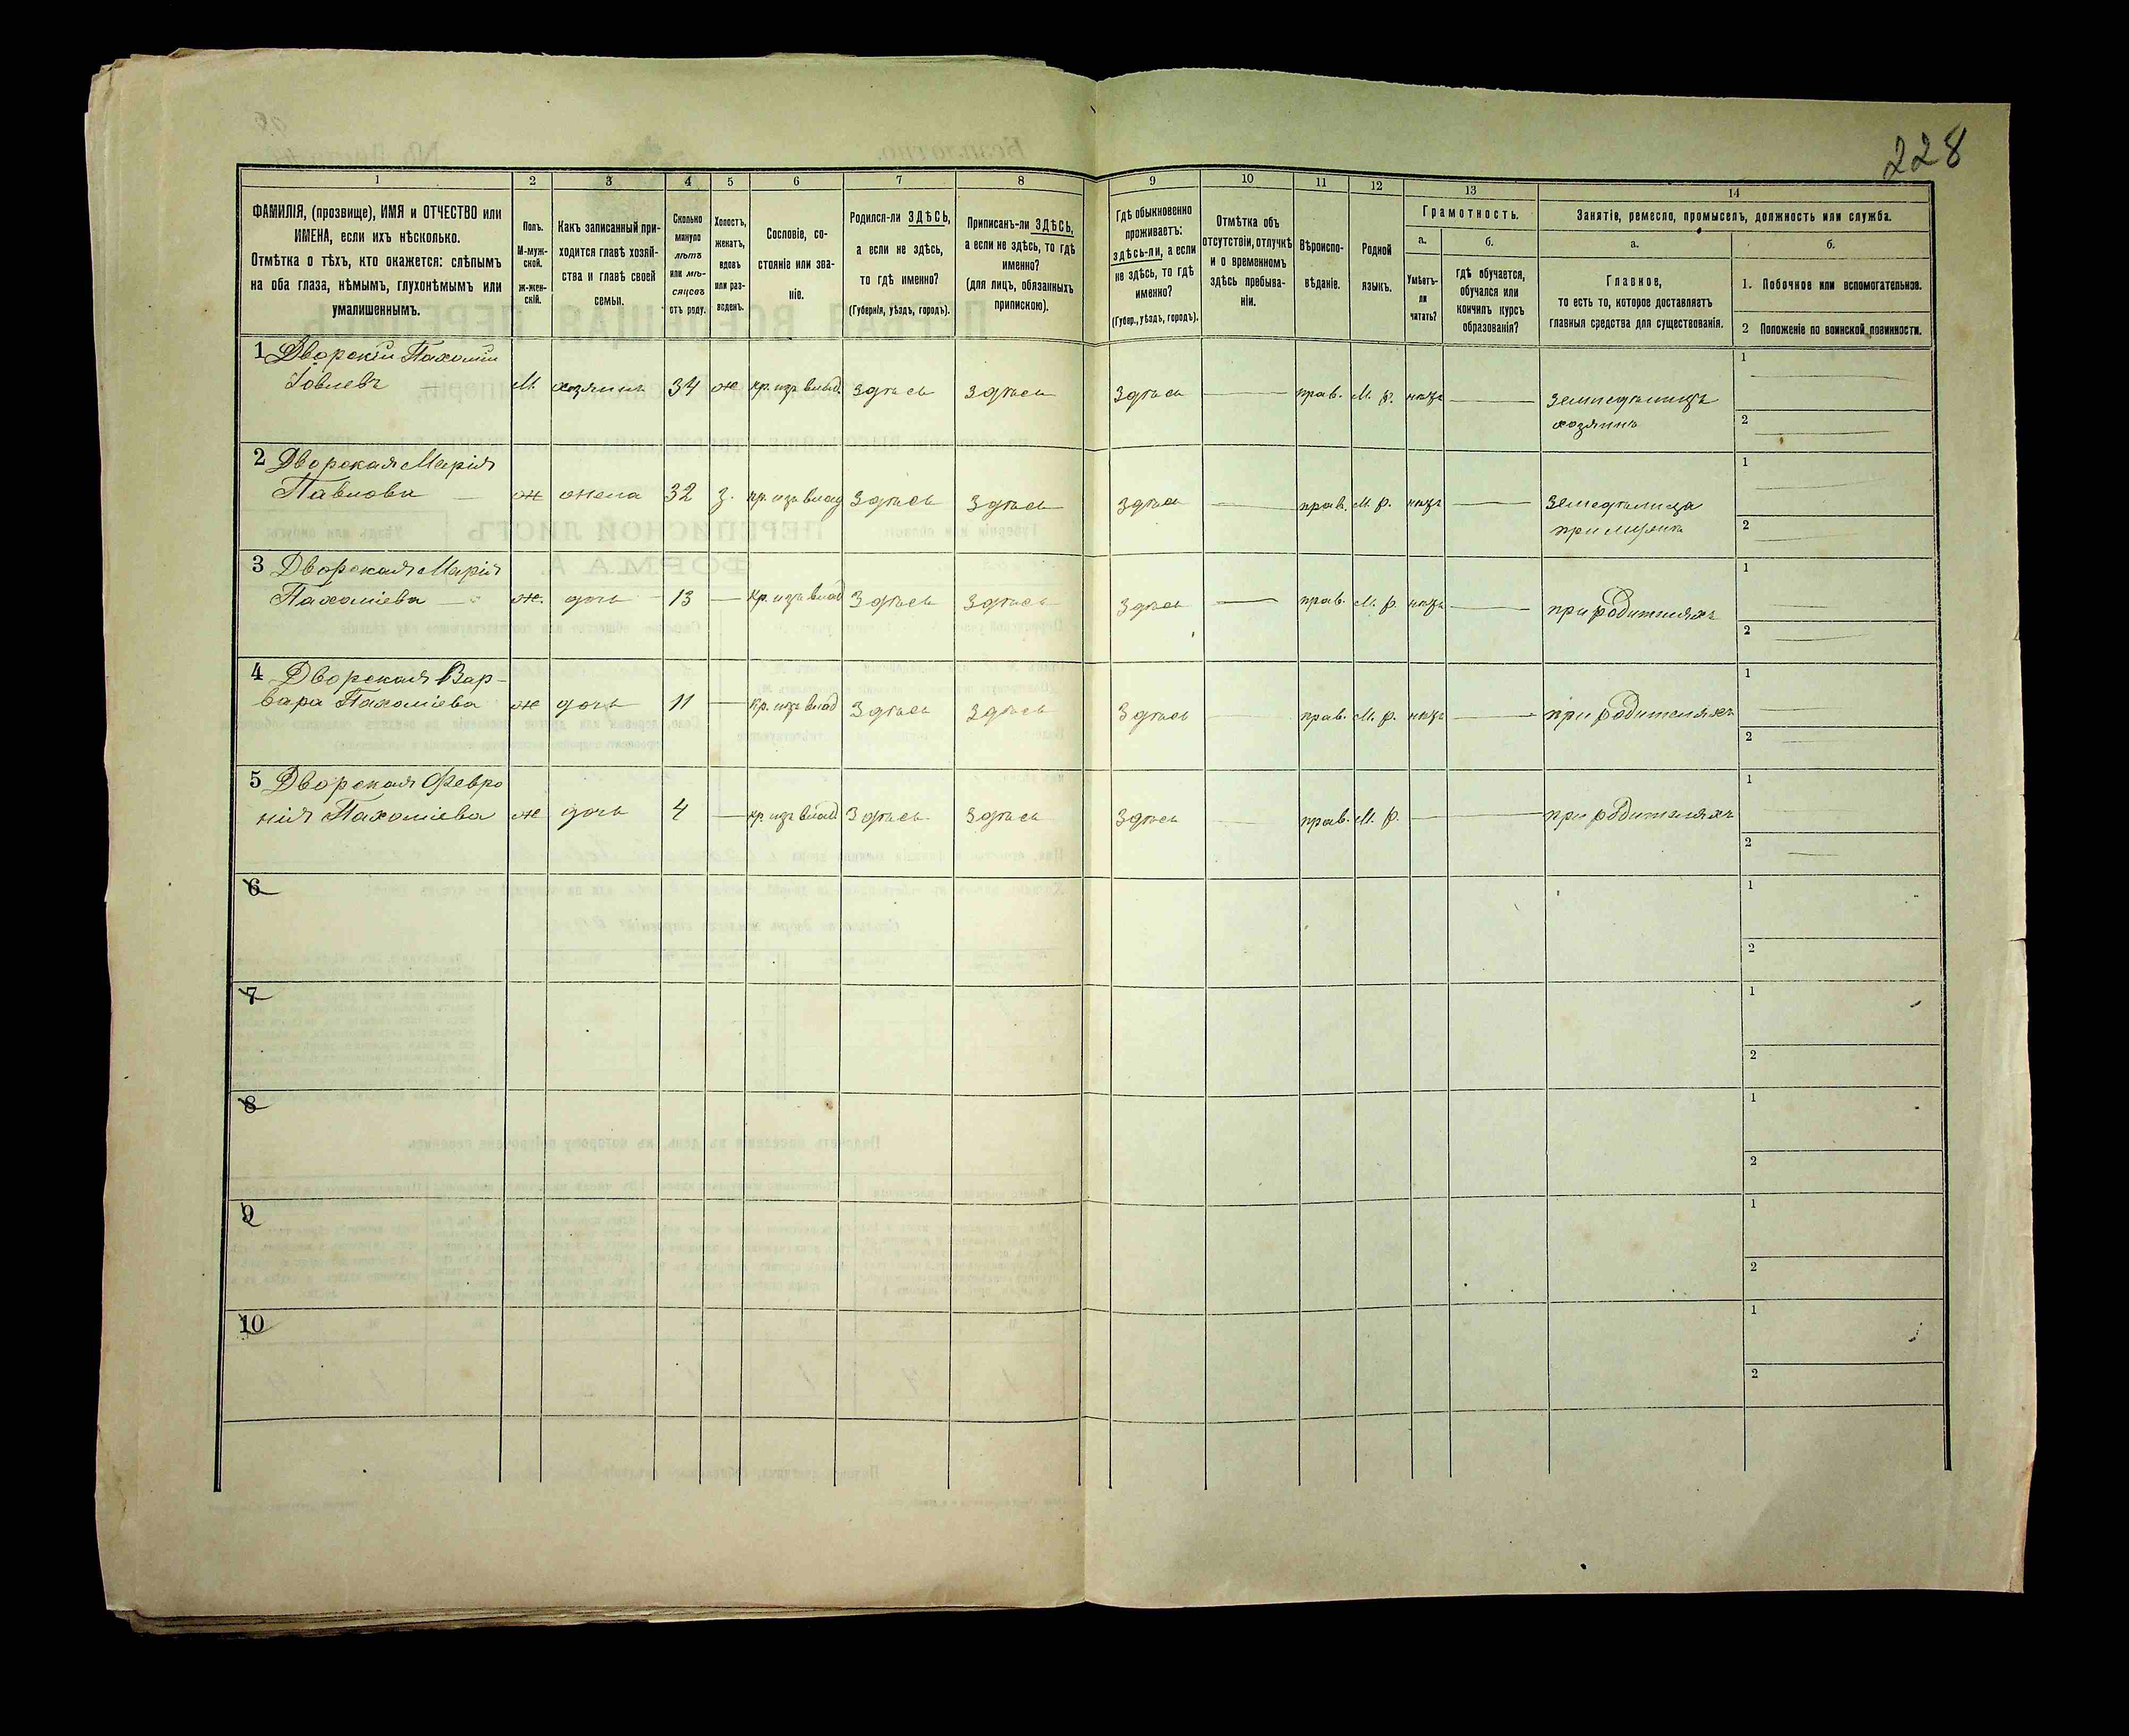 228
1 2 3 4 5 6 7 8 9 10 11 12 13 14
ФАМИЛІЯ, (прозвище), ИМЯ и ОТЧЕСТВО или
ИМЕНА, если ихъ нѣсколько.
Отмѣтка о тѣхъ, кто окажется: слѣпымъ
на оба глаза, нѣмымъ, глухонѣмымъ или
умалишеннымъ.
Полъ.
М-муж-
ской.
Ж-жен-
скій.
Какъ записанный при-
ходится главѣ хозяй-
ства и главѣ своей
семьи.
Сколько
минуло
лѣтъ
или мѣ-
сяцевъ
отъ роду.
Холостъ,
женатъ,
вдовъ
или раз-
веденъ.
Сословіе, со-
стояніе или зва-
ніе.
Родился-ли ЗДѢСЬ,
а если не здѣсь,
то гдѣ именно?
(Губернія, уѣздъ, городъ).
Приписанъ-ли ЗДѢСЬ,
а если не здѣсь, то гдѣ
именно?
(для лицъ, обязанныхъ
припискою).
Гдѣ обыкновенно
проживаетъ:
здѣсь-ли, а если
не здѣсь, то гдѣ
именно?
(Губер., уѣздъ, городъ).
Отмѣтка объ
отсутствіи, отлучкѣ
и о временномъ
здѣсь пребыва-
ніи.
Вѣроиспо-
вѣданіе.
Родной
языкъ.
Грамотность.
а.
Умѣетъ-
ли
читать?
б.
гдѣ обучается,
обучался или
кончилъ курсъ
образованія?
Занятіе, ремесло, промыселъ, должность или служба.
а.
Главное,
то есть то, которое доставляетъ
главныя средства для существованія.
б.
1. Побочное или вспомогательное.
2 Положеніе по воинской повинности.
1 Дворскій Пахомій
Іовлевъ М. хозяинъ 34 ж кр. изъ влад. Здѣсь Здѣсь Здѣсь прав. М. р. нѣтъ земледѣлецъ
хозяинъ
1
2
2 Дворская Марія
Павлова ж жена 32 з. кр. изъ влад Здѣсь Здѣсь Здѣсь прав. М. р. нѣтъ земледѣлица
при мужѣ
1
2
3 Дворская Марія
Пахоміева ж. дочь 13 кр. изъ влад Здѣсь Здѣсь Здѣсь прав. М. р. нѣтъ при родителяхъ
1
2
4 Дворская Вар-
вара Пахоміева ж дочь 11 кр. изъ влад Здѣсь Здѣсь Здѣсь прав. М. р. нѣтъ при родителяхъ
1
2
5 Дворская Февро
нія Пахоміева ж дочь 4 кр. изъ влад Здѣсь Здѣсь Здѣсь прав. М. р. при родителяхъ
1
2
6
1
2
7
1
2
8
1
2
9
1
2
10
1
2